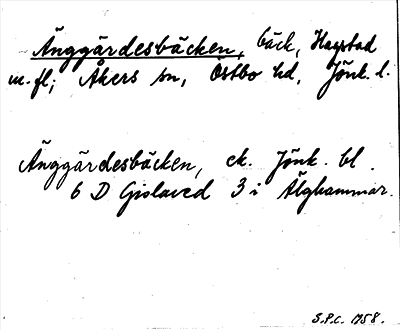 Änggärdesbäcken, bäck, Hagstad
m.fl; Åkers sn, Östbo hd, Jönk. l.
Änggärdesbäcken, ek. Jönk. bl.
6 D Gislaved 3 i Älghammar.
S.P.C. 1958.